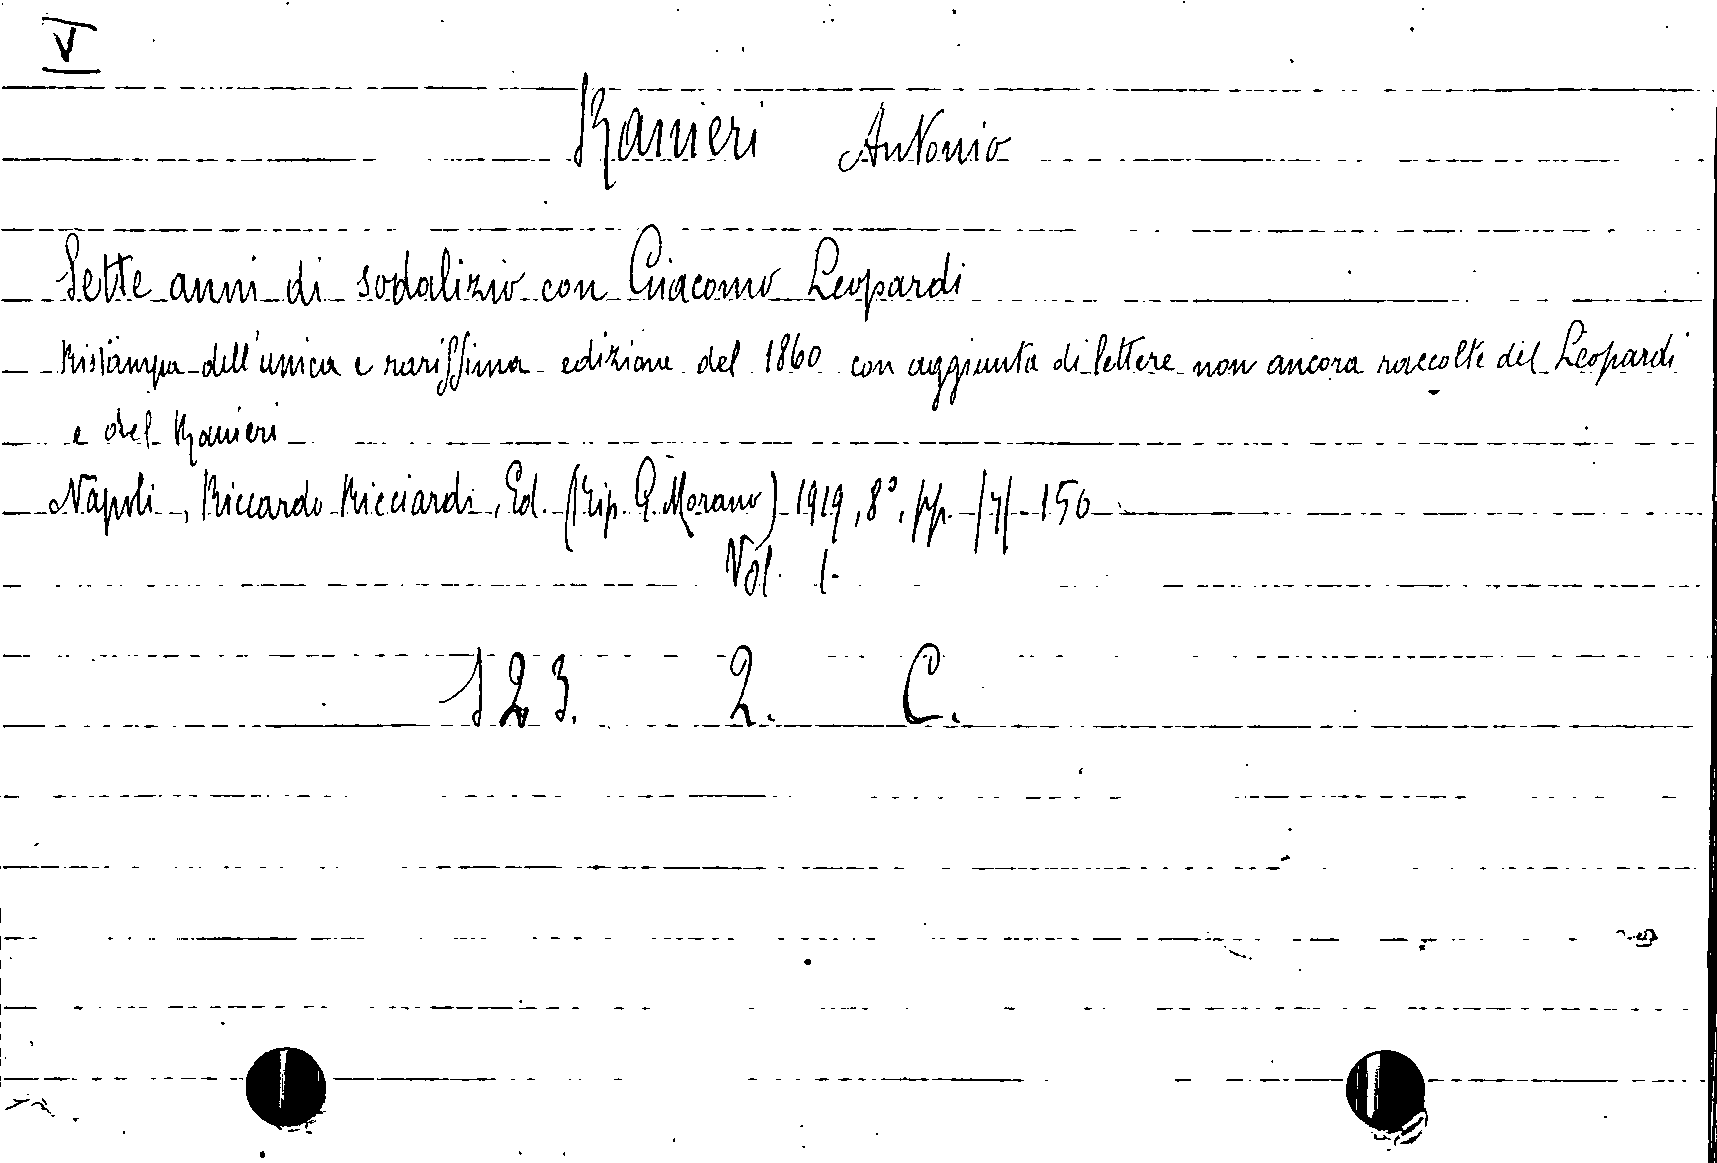 V
Ranieri Antonio
Sette anni di sodalizio con Giacomo Leopardi
Ristampa dell'unica e rarissima edizione del 1860 con aggiunta di lettere non ancora raccolte del Leopardi
e del Ranieri
Napoli, Riccardo Ricciardi, Ed. (Tip. G. Morano) 1919, 8°, pp. /7/-150
Vol. 1.
123. 2. C.